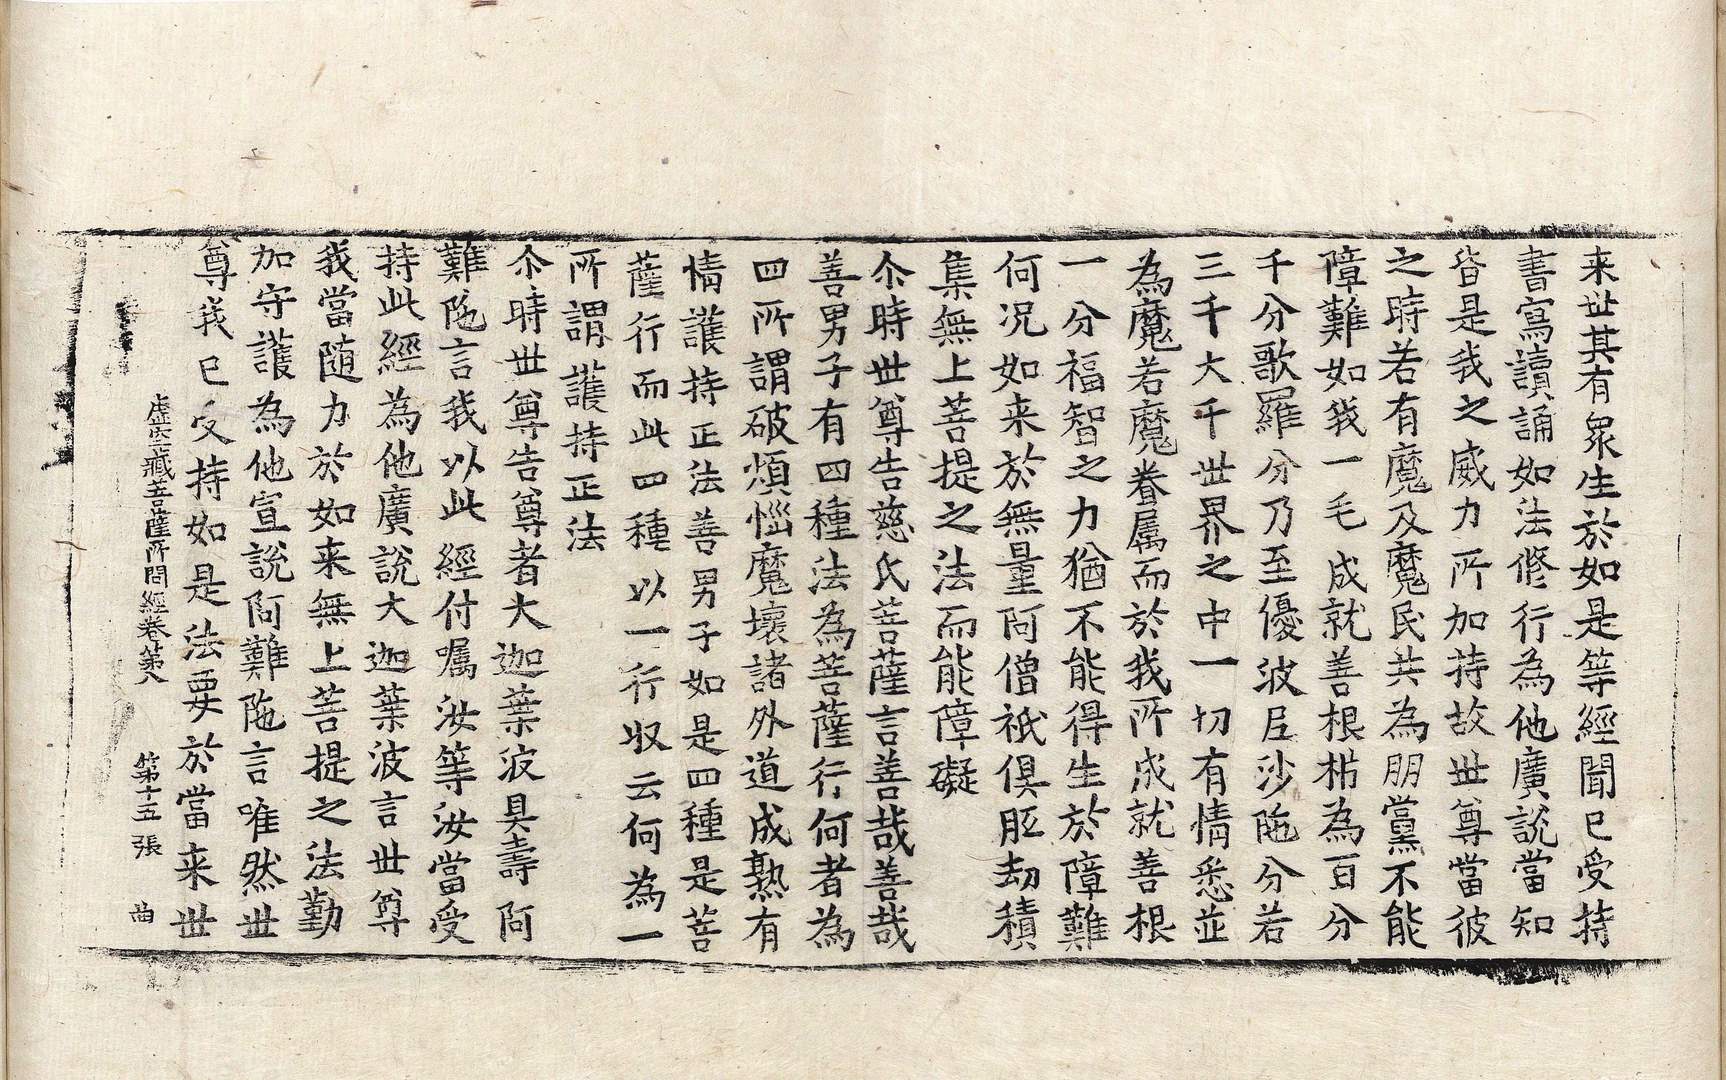 来世其有衆生於如是等經聞已受持
書寫讀誦如法修行為他廣說當知
皆是我之威力所加持故世尊當彼
之時若有魔及魔民共為朋黨不能
障難如我一毛成就善根析為百分
千分歌羅分乃至優波尼沙陁分若
三千大千世界之中一切有情悉並
為魔若魔眷属而於我所成就善根
一分福智之力猶不能得生於障難
何况如来於無量阿僧祇俱胝劫積
集無上菩提之法而能障礙
尒時世尊告慈氏菩薩言善哉善哉
善男子有四種法為菩薩行何者為
四所謂破煩惱魔壞諸外道成熟有
情護持正法善男子如是四種是菩
薩行而此四種以一行収云何為一
所謂護持正法
尒時世尊告尊者大迦葉波具壽阿
難陁言我以此經付嘱汝等汝當受
持此經為他廣說大迦葉波言世尊
我當随力於如来無上菩提之法勤
加守護為他宣說阿難陁言唯然世
尊我已受持如是法要於當来世
虛空藏菩薩所問經卷第八 第十五張 曲